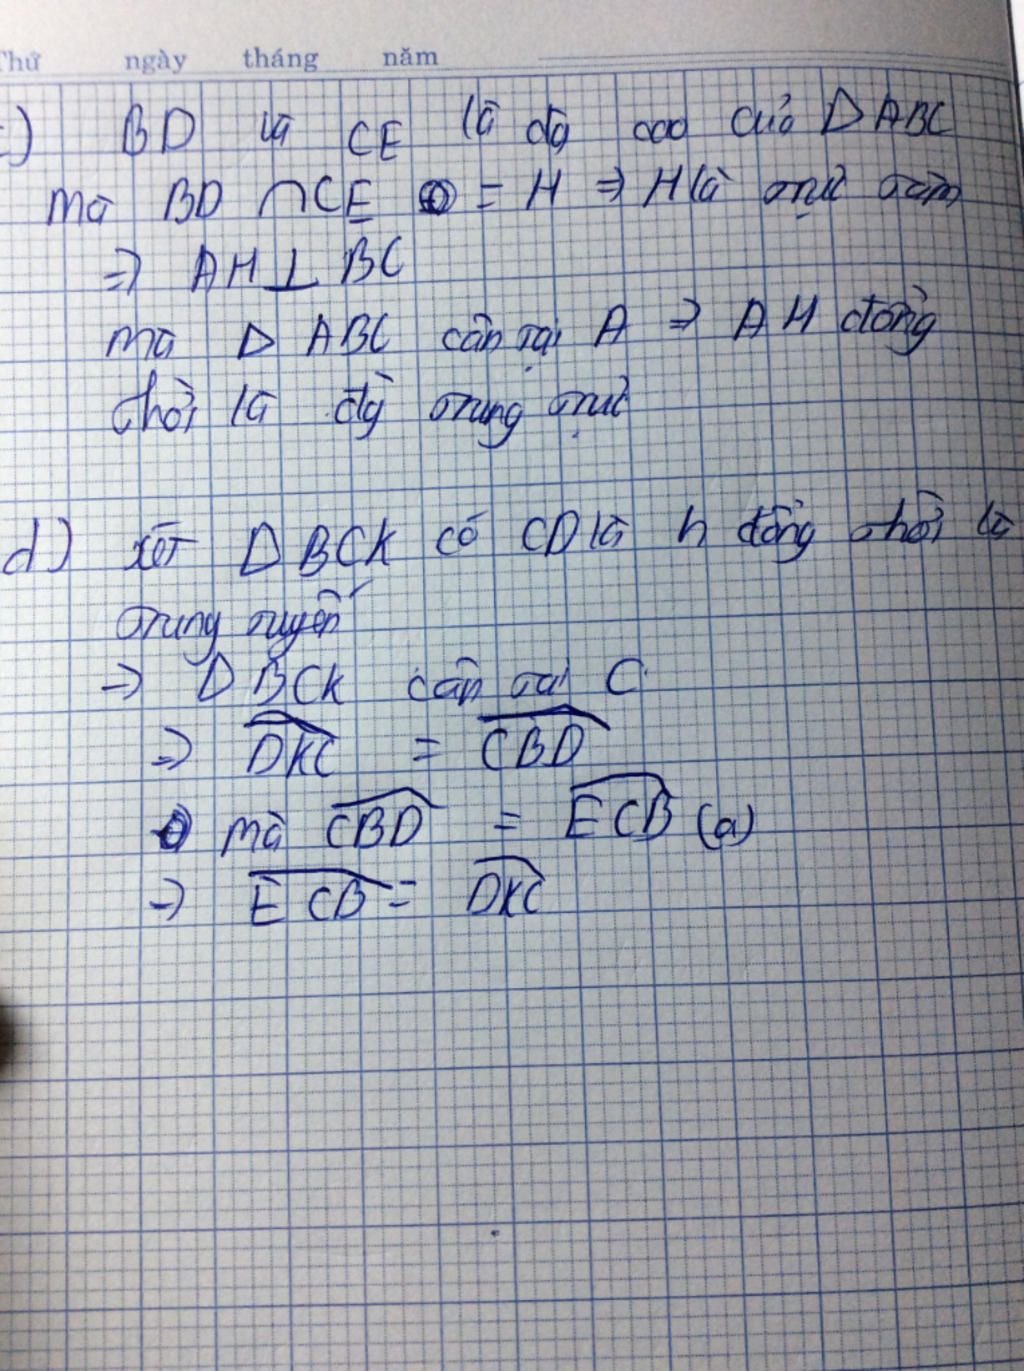 Thứ ngày tháng năm
c) BD và CE là đg cao của Δ ABC
mà BD ∩ CE = H ⇒ H là trực tâm
⇒ AH ⊥ BC
mà Δ ABC cân tại A ⇒ AH đồng
thời là đg trung trực
d) xét Δ BCK có CD là h đồng thời là
trung tuyến
⇒ Δ BCK cân tại C
⇒ \widehat{DKC} = \widehat{CBD}
mà \widehat{CBD} = \widehat{ECB} (a)
⇒ \widehat{ECB} = \widehat{DKC}